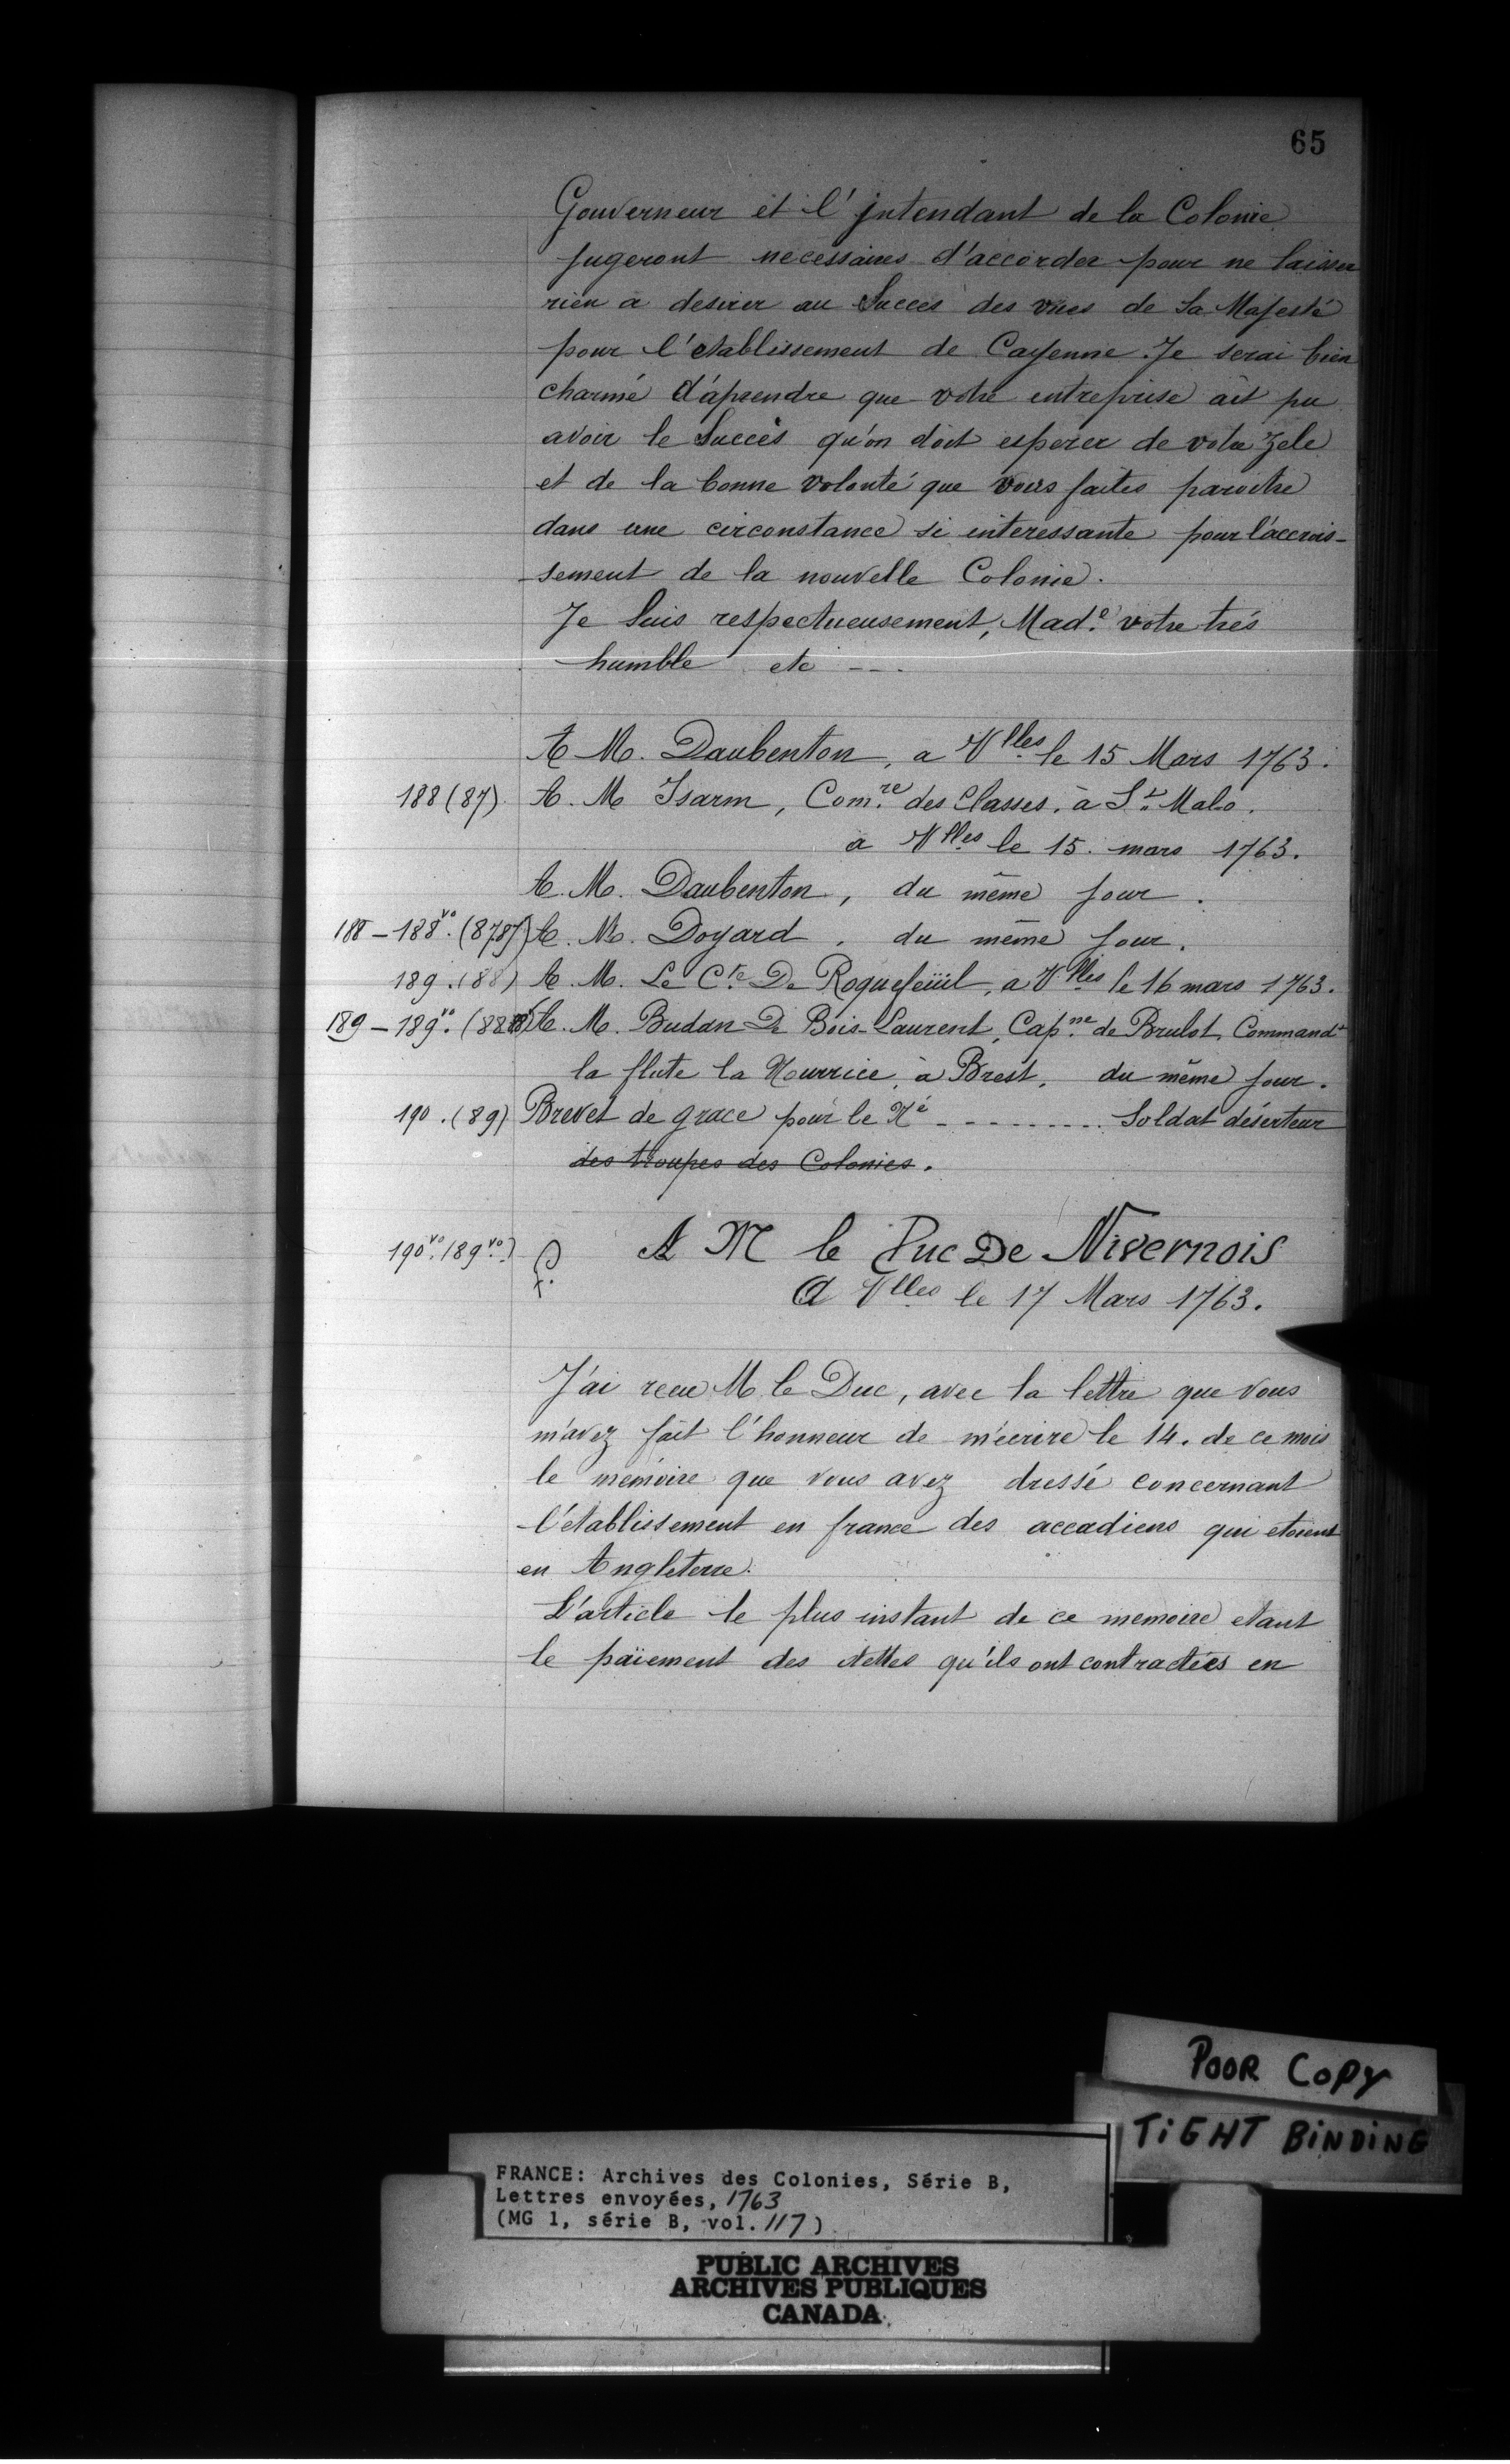 65
Gouverneur et l'jntendant de la Colonie
jugeront necessaires d'accorder pour ne laisser
rien a desirer au Succès des vües de Sa Majesté
pour l'etablissement de Cayenne. Je serai bien
charmé d'áprendre que votre entreprise ait pu
avoir le Succès qu'on doit esperer de votre Zele
et de la bonne volonté que vous faites paroitre
dans une circonstance si interessante pour l'accrois-
-sement de la nouvelle Colonie.
Je Suis respectueusement, Made. votre trés
humble etc ---.
A M. Daubenton, a Vlles le 15 Mars 1763.
188 (87) A. M Isarn, Comre des Classes. à St. Malo.
a Vlles le 15. mars 1763.
A. M. Daubenton, du même jour.
188 - 188vo. (87) A. M. Doyard, du même jour.
189. (88) A. M. Le Cte De Roquefeüil, a Vlles le 16 mars 1763.
189 - 189vo. (88) A. M. Budan De Bois-Laurent, Capne de Brulot, Commandt
la flute la Nourrice, à Brest, du même jour.
190. (89) Brevet de grace pour le Né --------- Soldat déserteur
des troupes des Colonies.
190vo. (89vo.) A M le Duc De Nivernois
A Vlles le 17 Mars 1763.
J'ai recu M le Duc, avec la lettre que vous
m'avez fait l'honneur de m'écrire le 14. de ce mois
le memoire que vous avez dressé concernant
l'établissement en france des accadiens qui etoient
en Angleterre.
L'article le plus instant de ce memoire etant
le païement des dettes qu'ils ont contractées en
POOR COPY
TIGHT BINDING
FRANCE: Archives des Colonies, Série B,
Lettres envoyées, 1763
(MG 1, série B, vol. 117)
PUBLIC ARCHIVES
ARCHIVES PUBLIQUES
CANADA